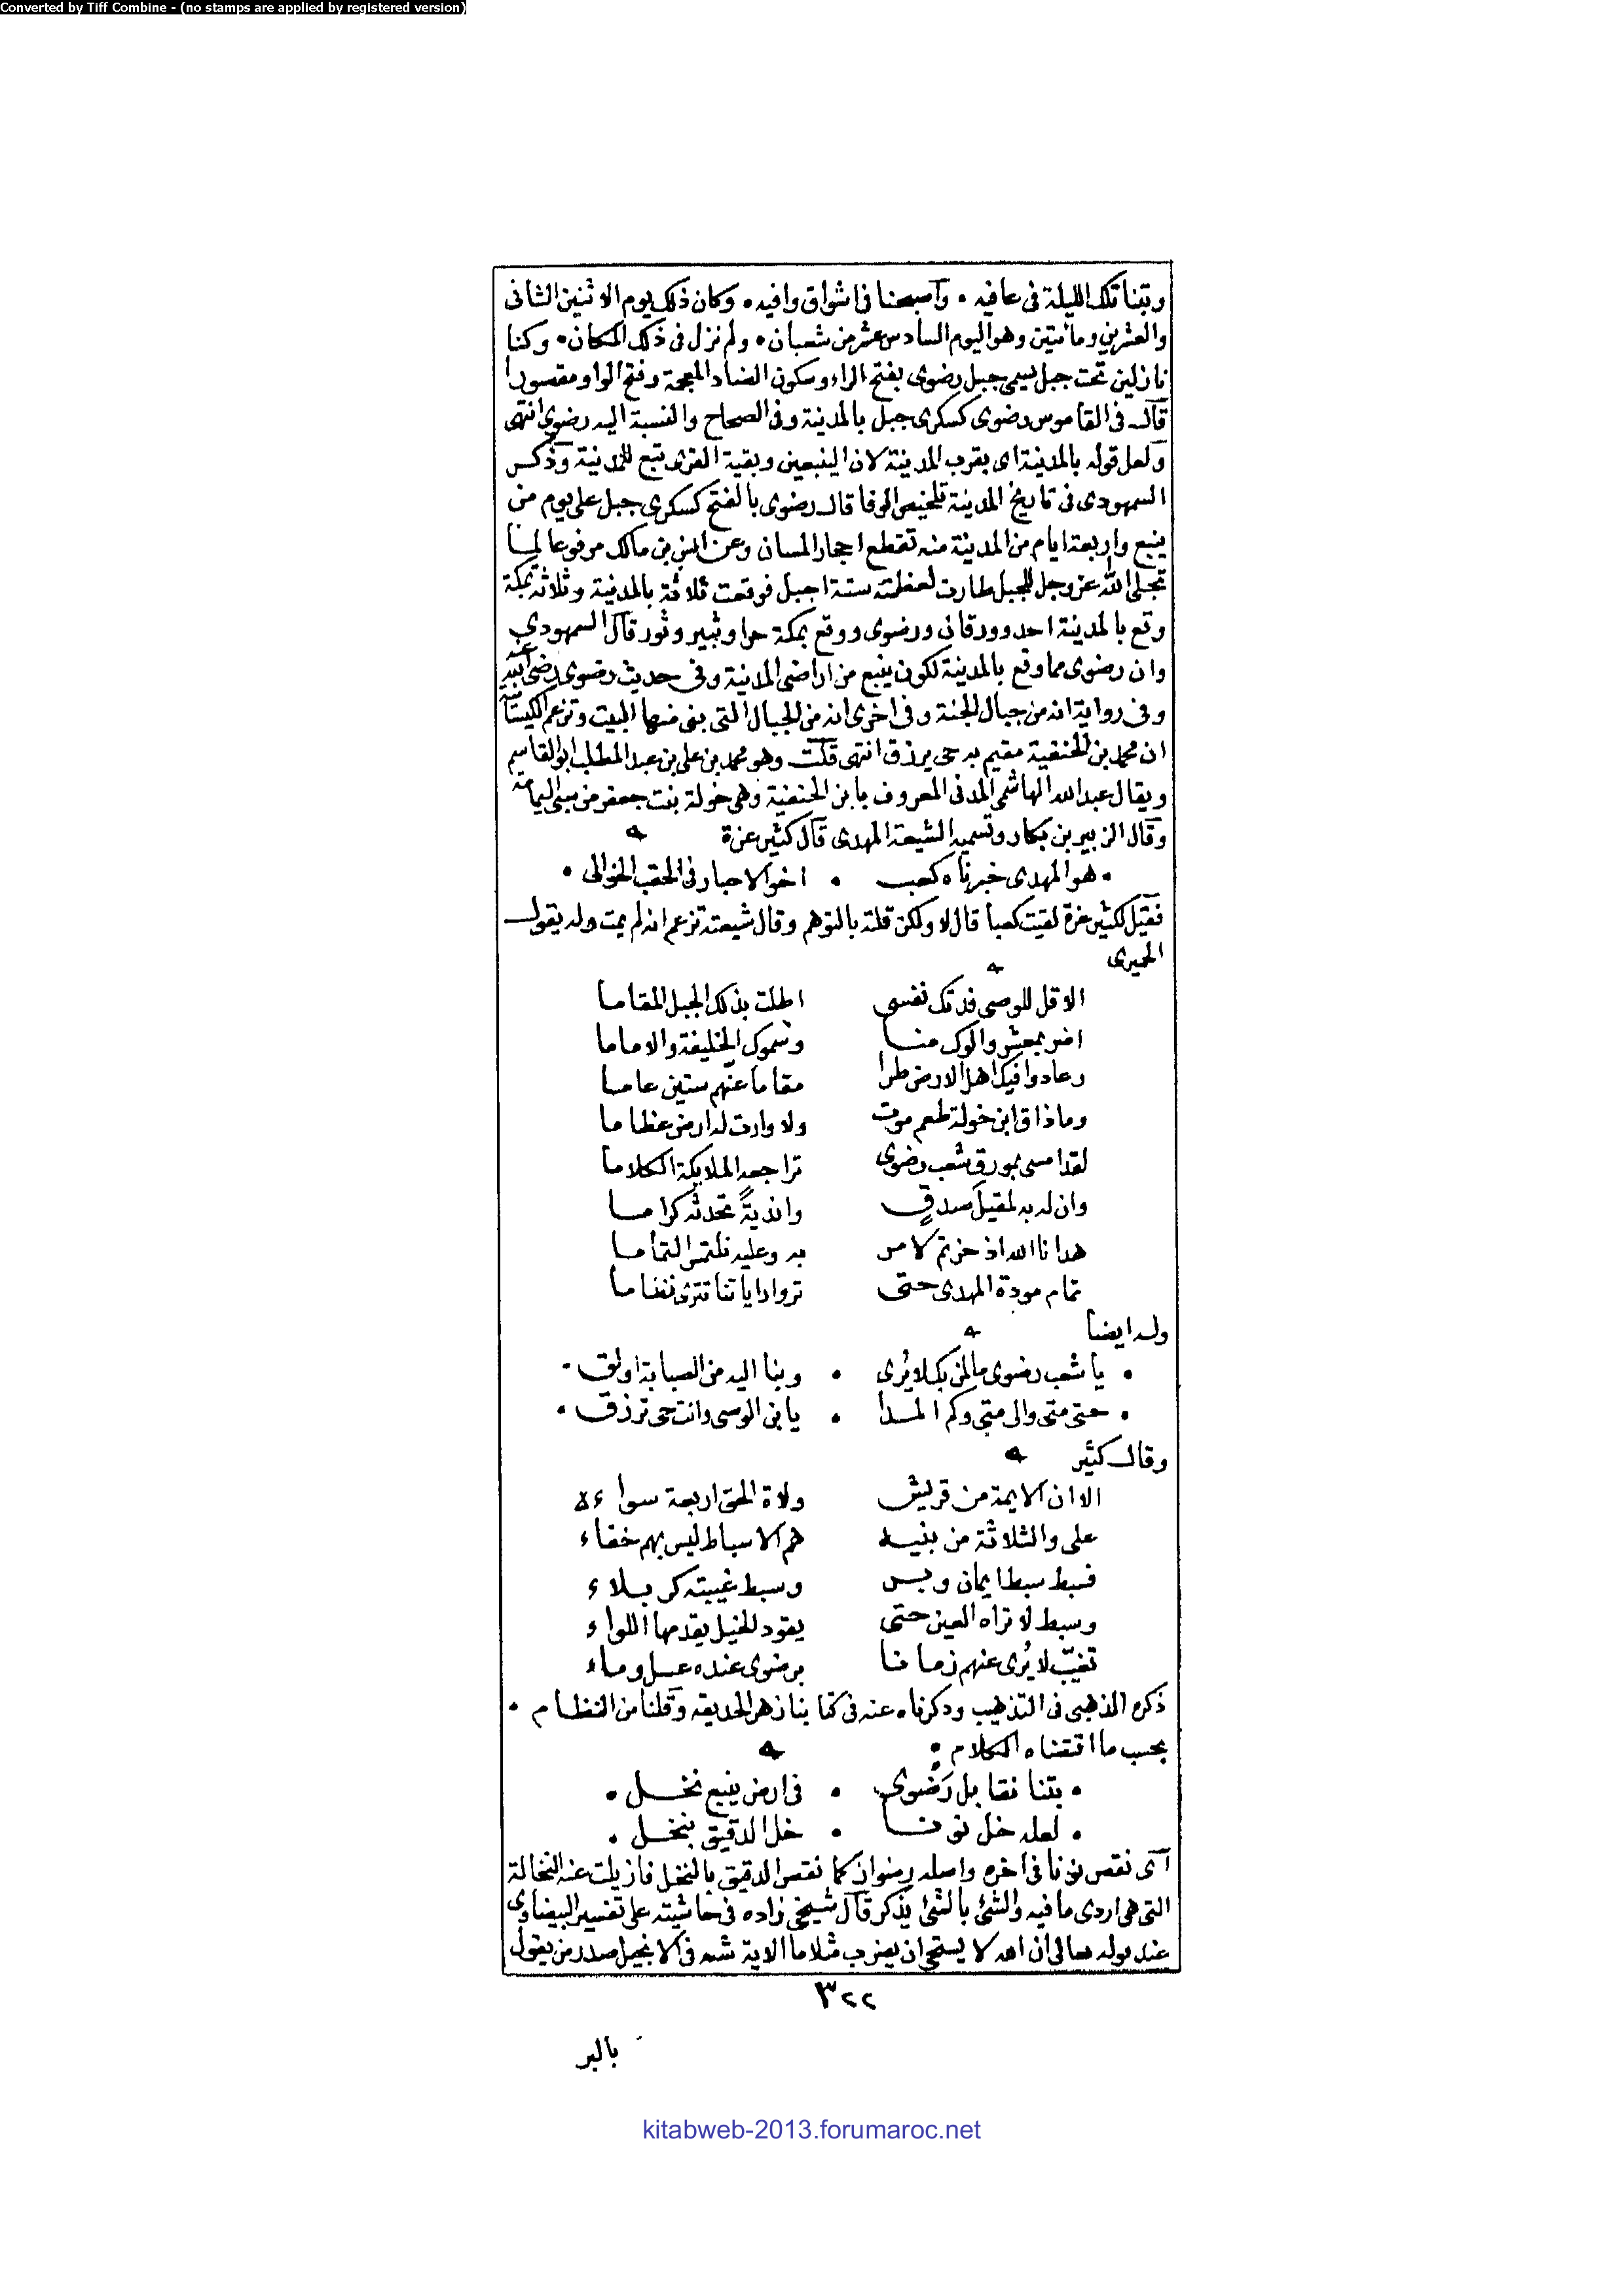 Converted by Tiff Combine - (no stamps are applied by registered version)
وبتنا تلك الليلة فى عافيه • وآصبحنا فى اشواق وافيه • وكان ذلك يوم الاثنين الثانى
والعشرين ومائتين وهو اليوم السادس عشر من شعبان • ولم نزل فى ذلك المكان • وكنا
نازلين تحت جبل يسمى جبل رضوى بفتح الراء وسكون الضاد المعجمة وفتح الواو مقصورا
قال فى القاموس رضوى كسكرى جبل بالمدينة وفى الصحاح والنسبة اليه رضوى انتهى
ولعل قوله بالمدينة اى بقرب المدينة لان الينبعين وبقية القرى تبع للمدينة وذكر
السمهودى فى تاريخ المدينة تلخيص الوفا قال رضوى بالفتح كسكرى جبل على يوم من
ينبع واربعة ايام من المدينة منه تقطع احجار المسان وعن انس بن مالك مرفوعا لما
تجلى الله عز وجل للجبل طارت لعظمته ستة اجبل فوقعت ثلاثة بالمدينة وثلاثة بمكة
وقع بالمدينة احد وورقان ورضوى ووقع بمكة حرا وثبير وثور قال السمهودى
وان رضوى مما وقع بالمدينة لكون ينبع من اراضى المدينة وفى حديث رضوى رضى الله عنه
وفى رواية انه من جبال الجنة وفى اخرى انه من الجبال التى بنى منها البيت وتزعم الكيسانية
ان محمد بن الحنفية مقيم به حى يرزق انتهى قلت وهو محمد بن على بن عبد المطلب ابو القاسم
ويقال عبد الله الهاشمى المدنى المعروف بابن الحنفية وهى خولة بنت جعفر من سبى اليمامة
وقال الزبير بن بكار وتسميه الشيعة المهدى قال كثير عزة
• هو المهدى خبرناه كعب • اخو الاحبار فى الحقب الخوالى •
فقيل لكثير عزة لقيت كعبا قال لا ولكن قلته بالتوهم وقال شيعته تزعم انه لم يمت وله يقول
الحميرى
الا قل للوصى فدتك نفسى اطلت بذلك الجبل المقاما
اضر بمعشر والوك منا وسموك الخليفة والاماما
وعادوا فيك اهل الارض طرا مقاما عنهم ستين عاما
وما ذاق ابن خولة طعم موت ولا وارت له ارض عظاما
لقد امسى بمورق شعب رضوى تراجعه الملايكة الكلاما
وان له به لمقيل صدقٍ واندية تحدثه كراما
هدانا الله اذ حزتم لامر به وعليه نلتمس التماما
تمام مودة المهدى حتى تروا راياتنا تترى نظاما
وله ايضا
• يا شعب رضوى ما لمن بك لا يُرى • وبنا اليه من الصبابة اولق •
• حتى متى والى متى وكم المدا • يا بن الوصى وانت حى ترزق •
وقال كثير
الا ان الايمة من قريش ولاة الحق اربعة سواء
على والثلاثة من بنيه هم الاسباط ليس بهم خفاء
فسبط سبط ايمان وبر وسبط غيبته كربلاء
وسبط لا تراه العين حتى يقود الخيل يقدمها اللواء
تغيّب لا يُرى عنهم زمانا برضوى عنده عسل وماء
ذكره الذهبى فى التذهيب وذكرناه عنه فى كتابنا زهر الحديقه وقلنا من النظام •
بحسب ما اقتضاه الكلام
• بتنا نقابل رَضْوى • فى ارض ينبع نخل •
• لعله خل نونا • خل الدقيق بنخل •
آى نقص نونا فى آخره واصله رضوان كما نقص الدقيق بالنخل فازيلت عنه النخالة
التى هى اردى ما فيه والشئ بالشئ يذكر قال شيخى زاده فى حاشيته على تفسير البيضاوى
عند قوله تعالى ان الله لا يستحى ان يضرب مثلا ما الاية شبه فى الانجيل صدر من يقول
٣٢٢
بالبر
kitabweb-2013.forumaroc.net